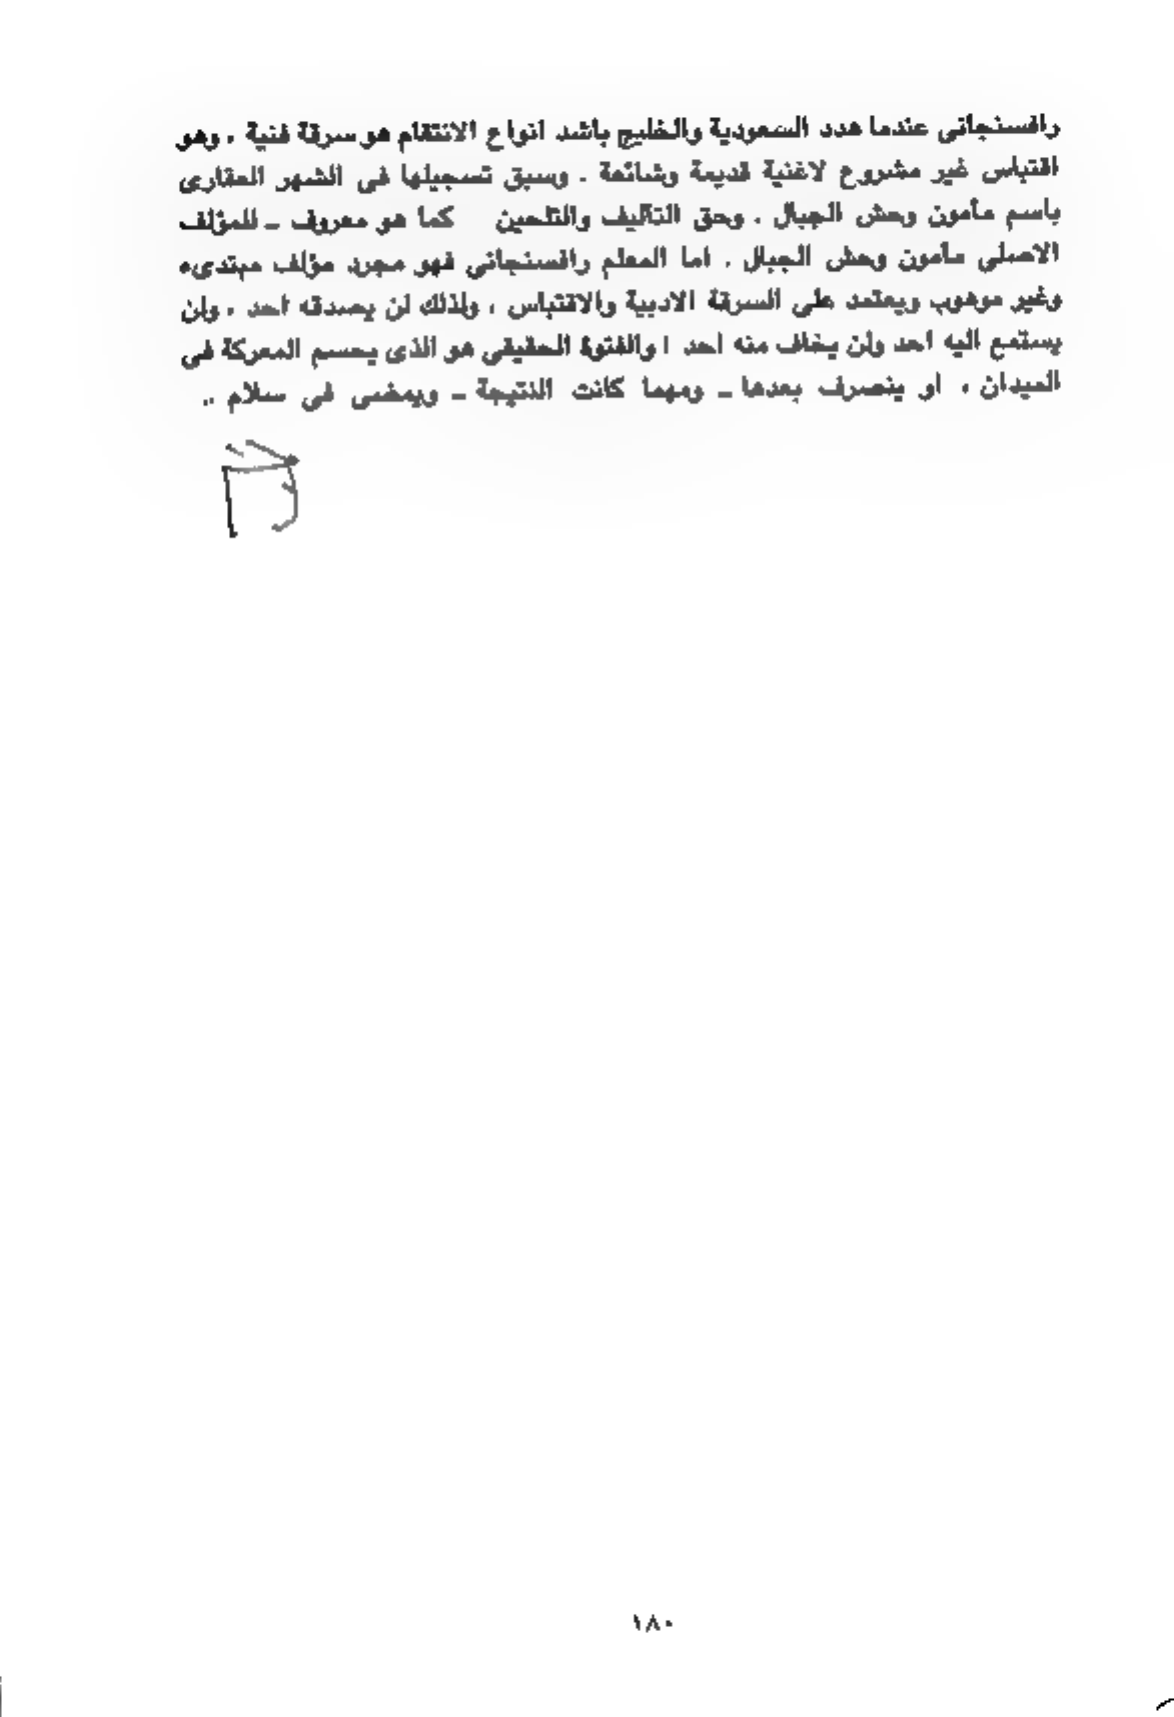 رافسنجانى عندما هدد السعودية والخليج باشد انواع الانتقام هو سرقة فنية ، وهو
اقتباس غير مشروع لاغنية قديمة وشائعة . وسبق تسجيلها فى الشهر العقارى
باسم مأمون وحش الجبال . وحق التأليف والتلحين كما هو معروف ـ للمؤلف
الاصلى مأمون وحش الجبال . اما المعلم رافسنجانى فهو مجرد مؤلف مبتدىء
وغير موهوب ويعتمد على السرقة الادبية والاقتباس ، ولذلك لن يصدقه احد ، ولن
يستمع اليه احد ولن يخاف منه احد ! والفتوة الحقيقى هو الذى يحسم المعركة فى
الميدان ، او ينصرف بعدها ـ ومهما كانت النتيجة ـ ويمضى فى سلام ..
١٨٠